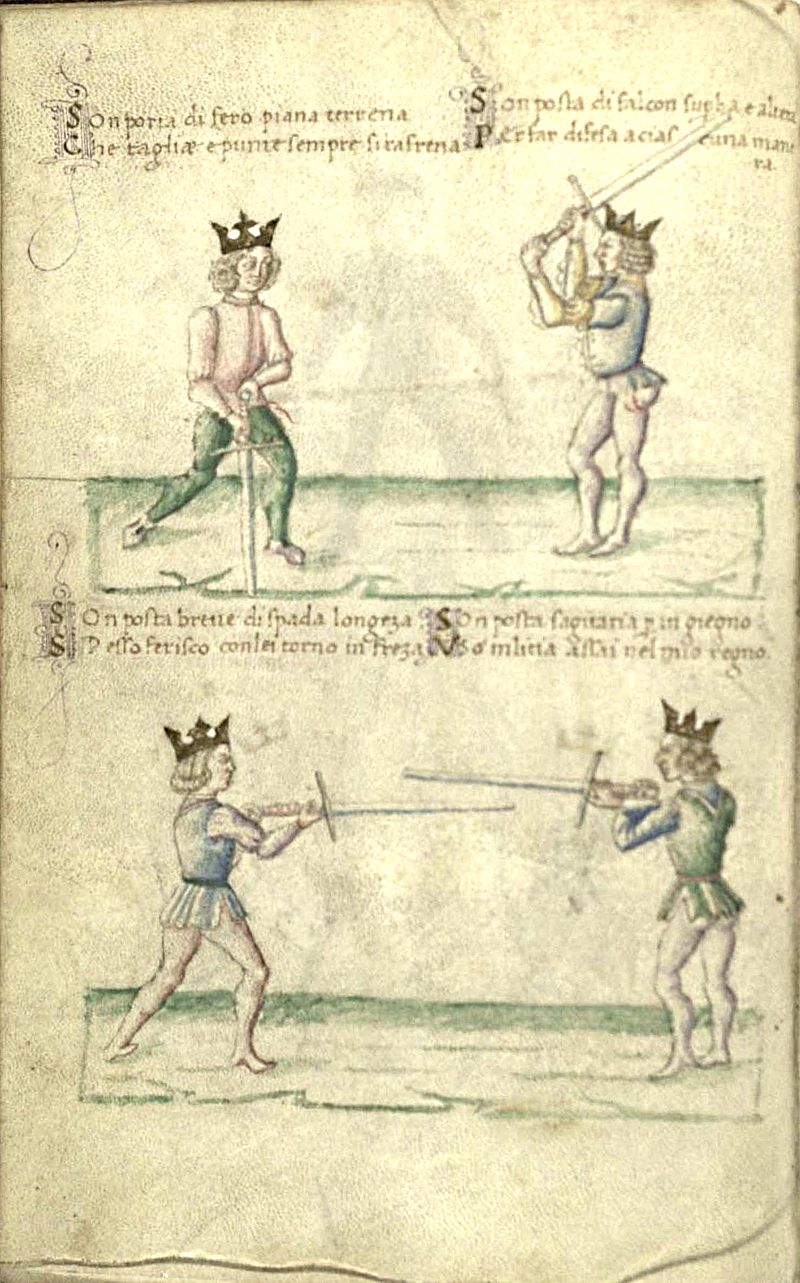 Son porta di fero piana terrena
Che tagliæ e punte sempre si rafrena
Son posta di falcon supba e altera
Per far difesa a cias cuna mane
ra.
Son posta breue di spada longeza
Spesso ferisco con lei torno in freza
Son posta sagitaria p in giegno
Vso mlitia assai nel mio regno.